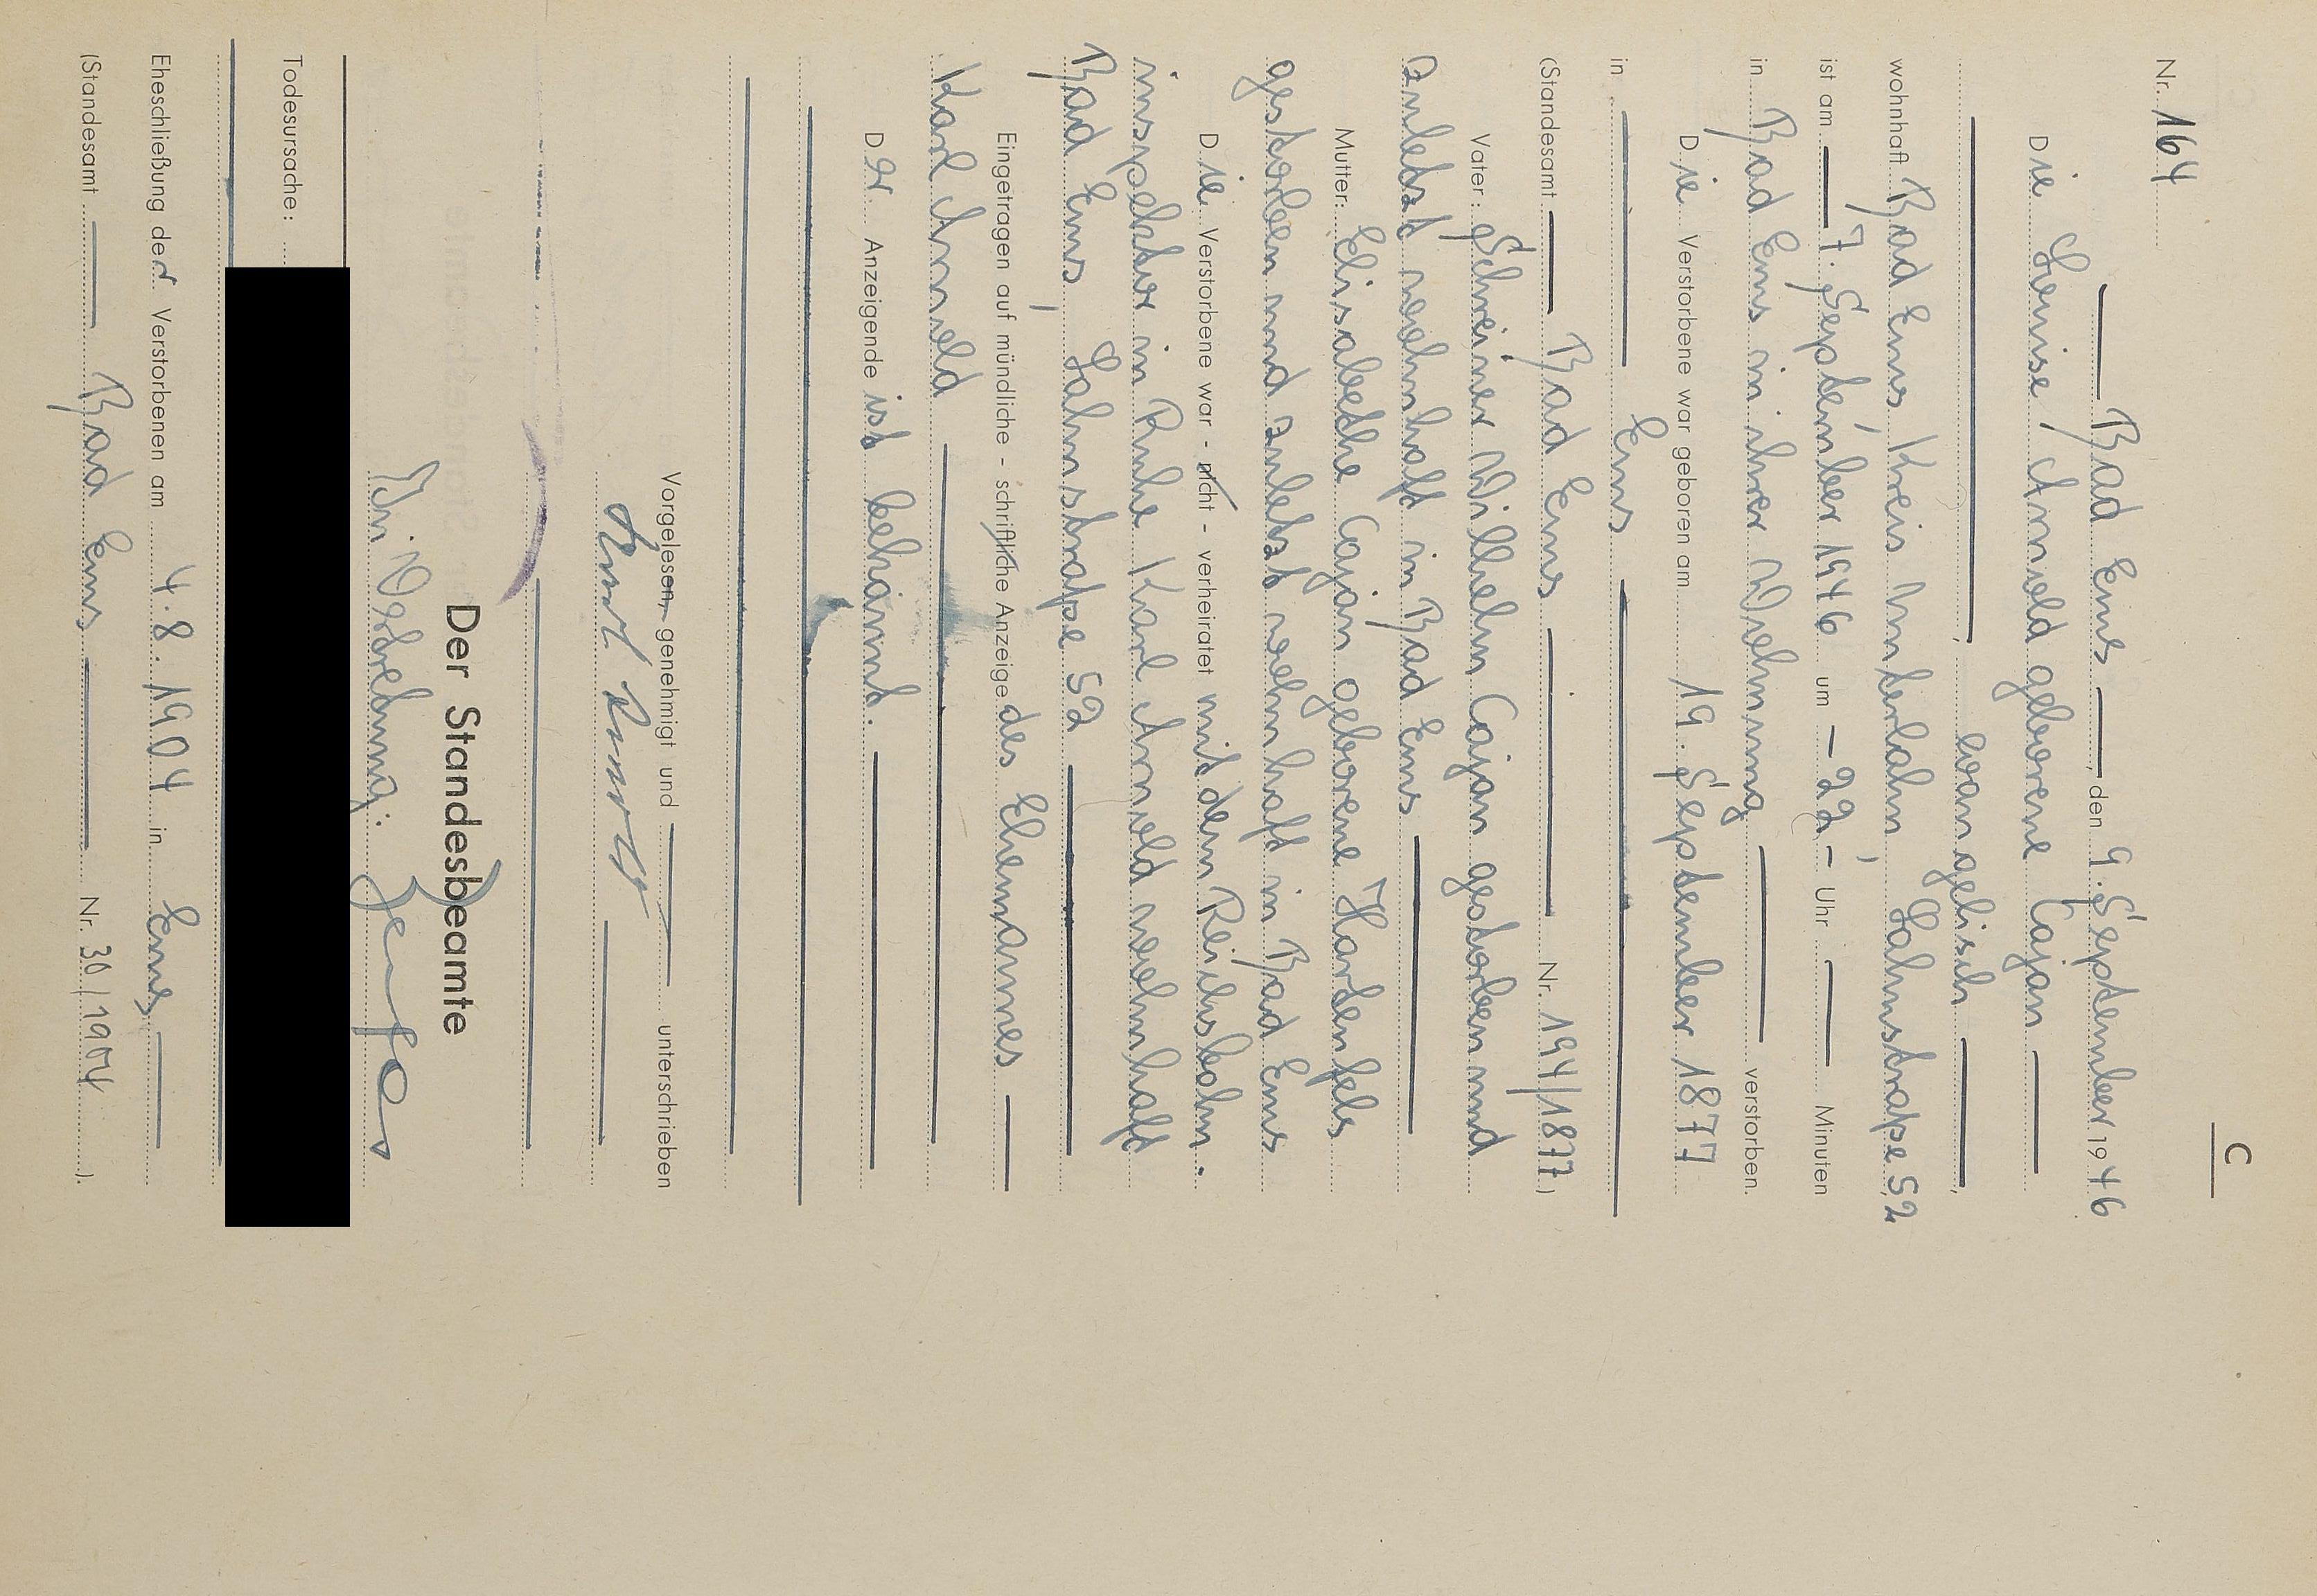 C
Nr. 164
Bad Ems, den 9. September 1946
Die Louise Arnold geborene Cajan
evangelisch,
wohnhaft Bad Ems Kreis Unterlahn, Lahnstraße 52
ist am 7. September 1946 um - 22 - Uhr Minuten
in Bad Ems in ihrer Wohnung verstorben.
Die Verstorbene war geboren am 19. September 1877
in Ems
(Standesamt Bad Ems Nr. 194/1877)
Vater: Schreiner Wilhelm Cajan gestorben und
zuletzt wohnhaft in Bad Ems
Mutter: Elisabethe Cajan geborene Hartenfels
gestorben und zuletzt wohnhaft in Bad Ems
Die Verstorbene war - nicht - verheiratet mit dem Reichsbahn-
inspektor in Ruhe Karl Arnold wohnhaft
Bad Ems, Lahnstraße 52
Eingetragen auf mündliche - schriftliche Anzeige des Ehemannes
Karl Arnold
Der Anzeigende ist bekannt.
Vorgelesen, genehmigt und unterschrieben
Der Standesbeamte
In Vertretung:
Todesursache:
Eheschließung der Verstorbenen am 4.8.1904 in Ems
(Standesamt Bad Ems Nr. 30/1904).